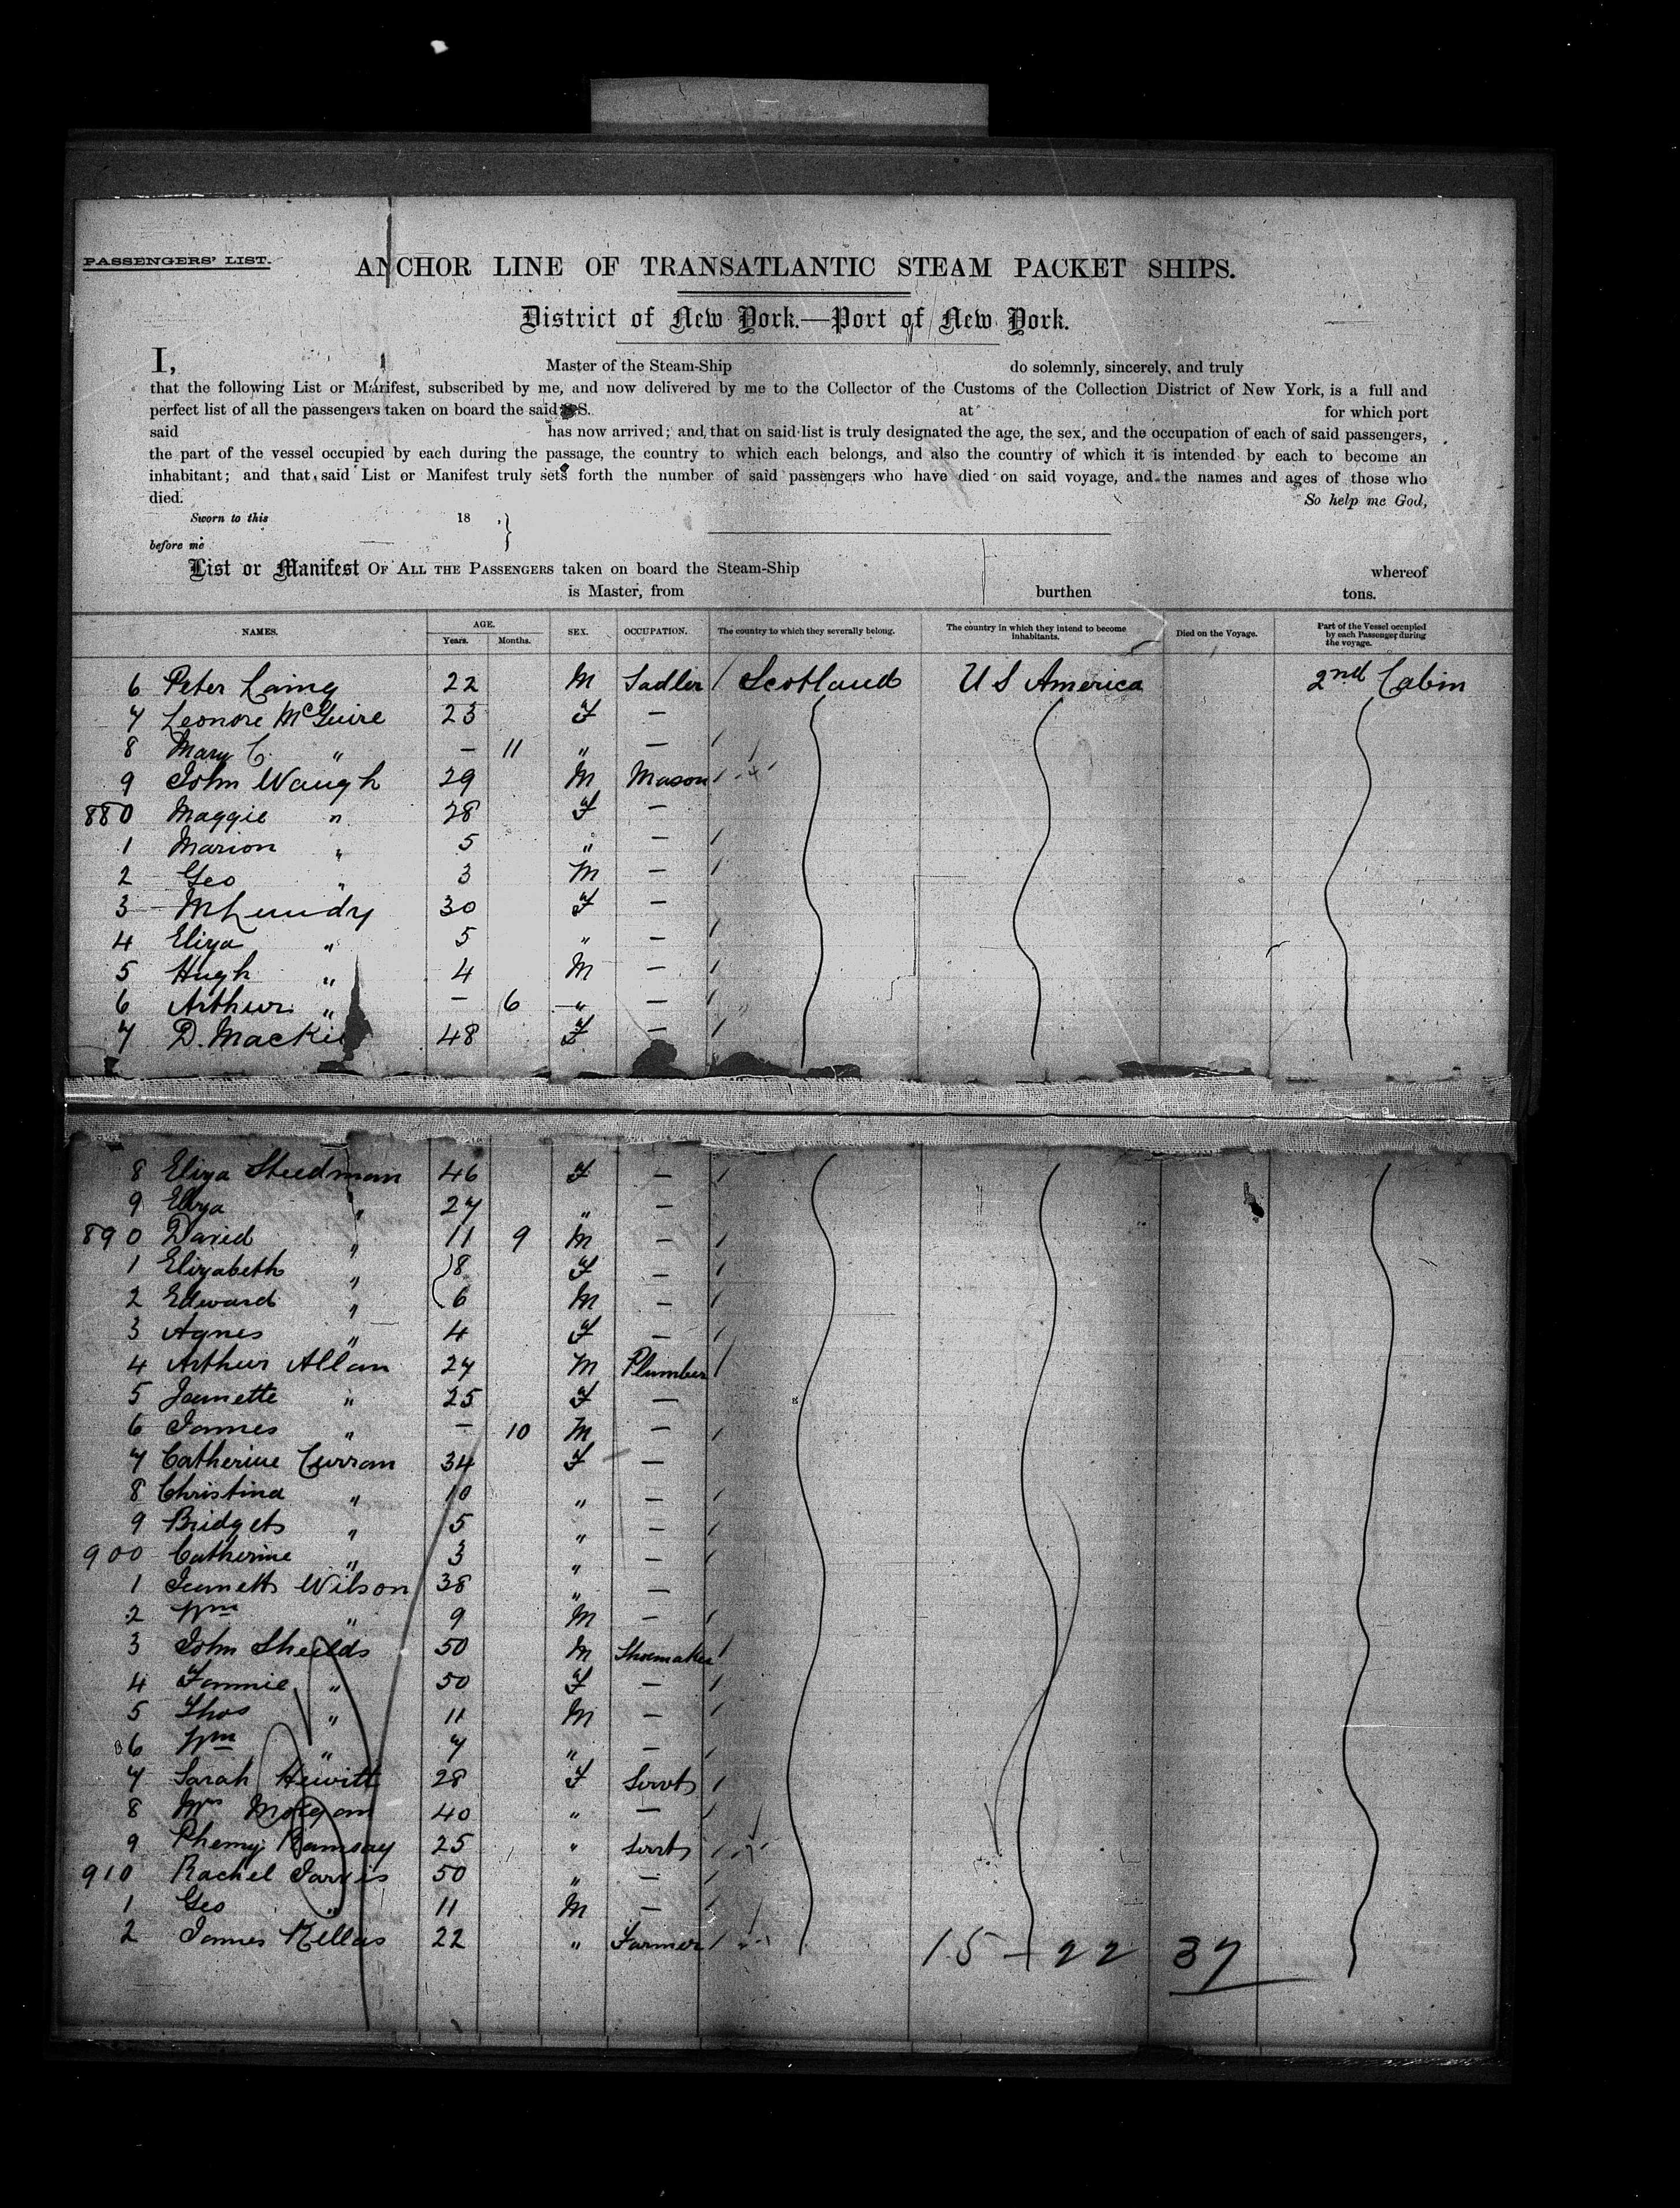 PASSENGERS' LIST.
ANCHOR LINE OF TRANSATLANTIC STEAM PACKET SHIPS.
District of New York.—Port of New York.
I, Master of the Steam-Ship do solemnly, sincerely, and truly
that the following List or Manifest, subscribed by me, and now delivered by me to the Collector of the Customs of the Collection District of New York, is a full and
perfect list of all the passengers taken on board the said S.S. at for which port
said has now arrived; and, that on said list is truly designated the age, the sex, and the occupation of each of said passengers,
the part of the vessel occupied by each during the passage, the country to which each belongs, and also the country of which it is intended by each to become an
inhabitant; and that said List or Manifest truly sets forth the number of said passengers who have died on said voyage, and the names and ages of those who
died. So help me God,
Sworn to this 18 .}
before me
List or Manifest OF ALL THE PASSENGERS taken on board the Steam-Ship whereof
is Master, from burthen tons.
NAMES. AGE. Years. Months. SEX. OCCUPATION. The country to which they severally belong. The country in which they intend to become inhabitants. Died on the Voyage. Part of the Vessel occupied by each Passenger during the voyage.
6 Peter Laing 22 M Sadler / Scotland U S America 2nd Cabin
7 Leonore McGuire 23 F —
8 Mary C. " — 11 " — /
9 John Waugh 29 M Mason /
880 Maggie " 28 F —
1 Marion " 5 " — /
2 Geo " 3 M — /
3 M Lundy 30 F —
4 Eliza " 5 " — /
5 Hugh " 4 M — /
6 Arthur " — 6 " — /
7 D. Mackie 48 F — /
8 Eliza Steedman 46 F — /
9 Eliza " 27 " —
890 David " 11 9 M — /
1 Elizabeth " 8 F — /
2 Edward " 6 M — /
3 Agnes " 4 F — /
4 Arthur Allan 27 M Plumber /
5 Jeanette " 25 F —
6 James " — 10 M — /
7 Catherine Curran 34 F —
8 Christina " 10 " — /
9 Bridget " 5 " — /
900 Catherine " 3 " — /
1 Jennett Wilson 38 " —
2 Wm " 9 M — /
3 John Sheilds 50 M Shoemaker /
4 Fannie " 50 F — /
5 Thos " 11 M — /
6 Wm " 7 " — /
7 Sarah Hewitt 28 F Servt /
8 Mrs Morgan 40 " — /
9 Phemy Ramsay 25 " Servt /
910 Rachel Jarvis 50 " — /
1 Geo " 11 M — /
2 James Kellas 22 " Farmer /
15 — 22 37